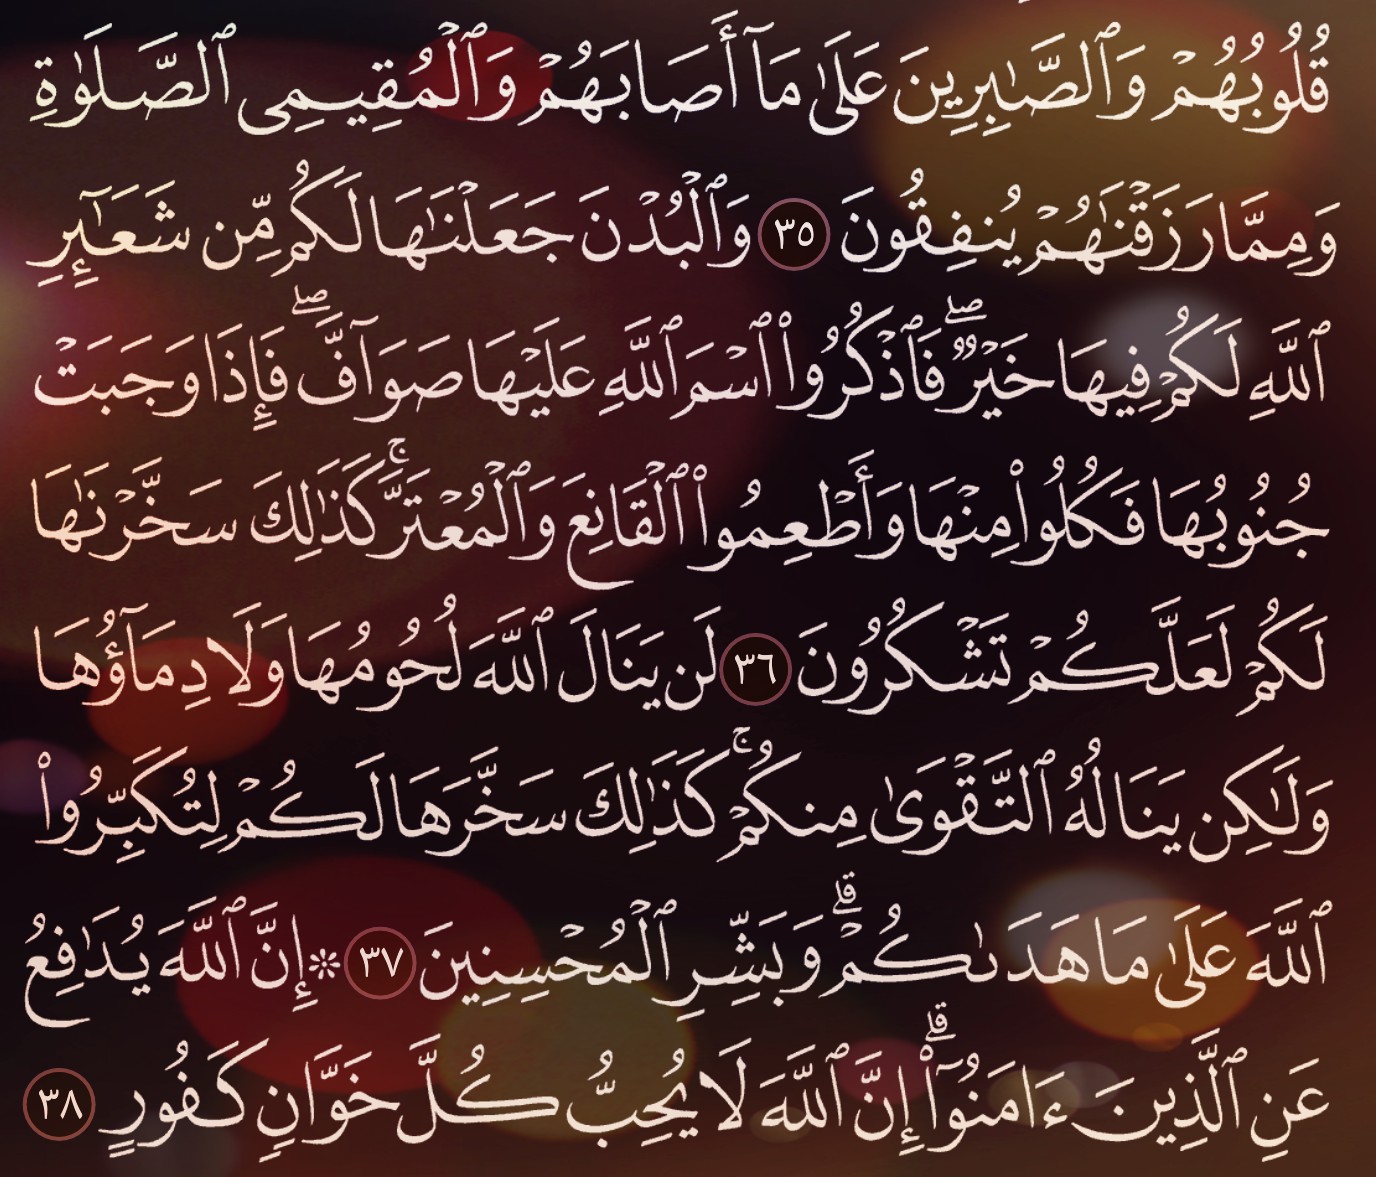 قُلُوبُهُمْ وَٱلصَّٰبِرِينَ عَلَىٰ مَآ أَصَابَهُمْ وَٱلْمُقِيمِى ٱلصَّلَوٰةِ
وَمِمَّا رَزَقْنَٰهُمْ يُنفِقُونَ ٣٥ وَٱلْبُدْنَ جَعَلْنَٰهَا لَكُم مِّن شَعَٰٓئِرِ
ٱللَّهِ لَكُمْ فِيهَا خَيْرٌ ۖ فَٱذْكُرُوا۟ ٱسْمَ ٱللَّهِ عَلَيْهَا صَوَآفَّ ۖ فَإِذَا وَجَبَتْ
جُنُوبُهَا فَكُلُوا۟ مِنْهَا وَأَطْعِمُوا۟ ٱلْقَانِعَ وَٱلْمُعْتَرَّ ۚ كَذَٰلِكَ سَخَّرْنَٰهَا
لَكُمْ لَعَلَّكُمْ تَشْكُرُونَ ٣٦ لَن يَنَالَ ٱللَّهَ لُحُومُهَا وَلَا دِمَآؤُهَا
وَلَٰكِن يَنَالُهُ ٱلتَّقْوَىٰ مِنكُمْ ۚ كَذَٰلِكَ سَخَّرَهَا لَكُمْ لِتُكَبِّرُوا۟
ٱللَّهَ عَلَىٰ مَا هَدَىٰكُمْ ۗ وَبَشِّرِ ٱلْمُحْسِنِينَ ٣٧ ۞ إِنَّ ٱللَّهَ يُدَٰفِعُ
عَنِ ٱلَّذِينَ ءَامَنُوٓا۟ ۗ إِنَّ ٱللَّهَ لَا يُحِبُّ كُلَّ خَوَّانٍ كَفُورٍ ٣٨